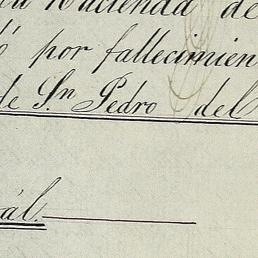 Hacienda de
por fallecimien
de Sn Pedro del
al.